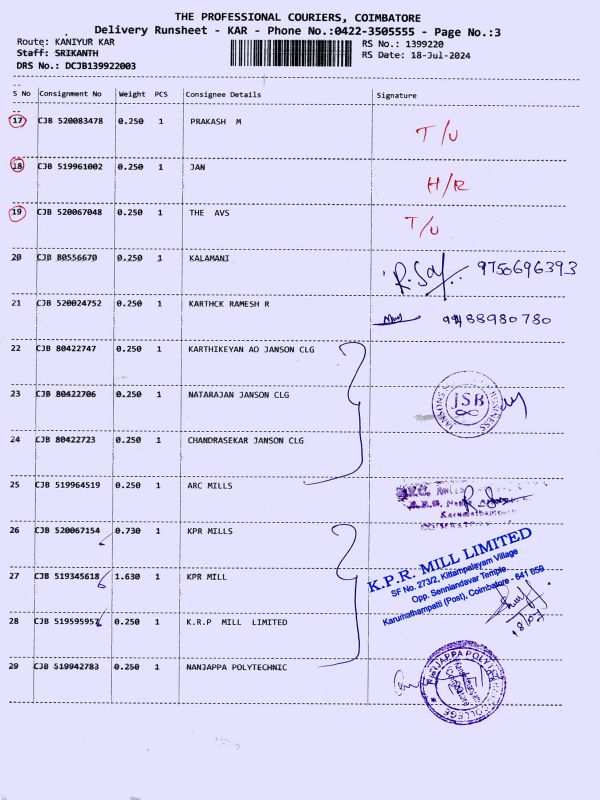 THE PROFESSIONAL COURIERS, COIMBATORE
Delivery Runsheet - KAR - Phone No.:0422-3505555 - Page No.:3
Route: KANIYUR KAR
RS No.: 1399220
Staff: SRIKANTH
RS Date: 18-Jul-2024
DRS No.: DCJB139922003
S No Consignment No Weight PCS Consignee Details Signature
17 CJB 520083478 0.250 1 PRAKASH M T/U
18 CJB 519961002 0.250 1 JAN H/R
19 CJB 520067048 0.250 1 THE AVS T/U
20 CJB 80556670 0.250 1 KALAMANI 9750696393
21 CJB 520024752 0.250 1 KARTHCK RAMESH R 9488980780
22 CJB 80422747 0.250 1 KARTHIKEYAN AO JANSON CLG
23 CJB 80422706 0.250 1 NATARAJAN JANSON CLG JSB
24 CJB 80422723 0.250 1 CHANDRASEKAR JANSON CLG
25 CJB 519964519 0.250 1 ARC MILLS
26 CJB 520067154 0.730 1 KPR MILLS
27 CJB 519345618 1.630 1 KPR MILL
K.P.R. MILL LIMITED
SF No. 273/2, Kittampalayam Village
Opp. Senniandavar Temple
Karumathampatti (Post), Coimbatore - 641 659
18/07
28 CJB 519595957 0.250 1 K.R.P MILL LIMITED
29 CJB 519942783 0.250 1 NANJAPPA POLYTECHNIC
NANJAPPA POLYTECHNIC COLLEGE